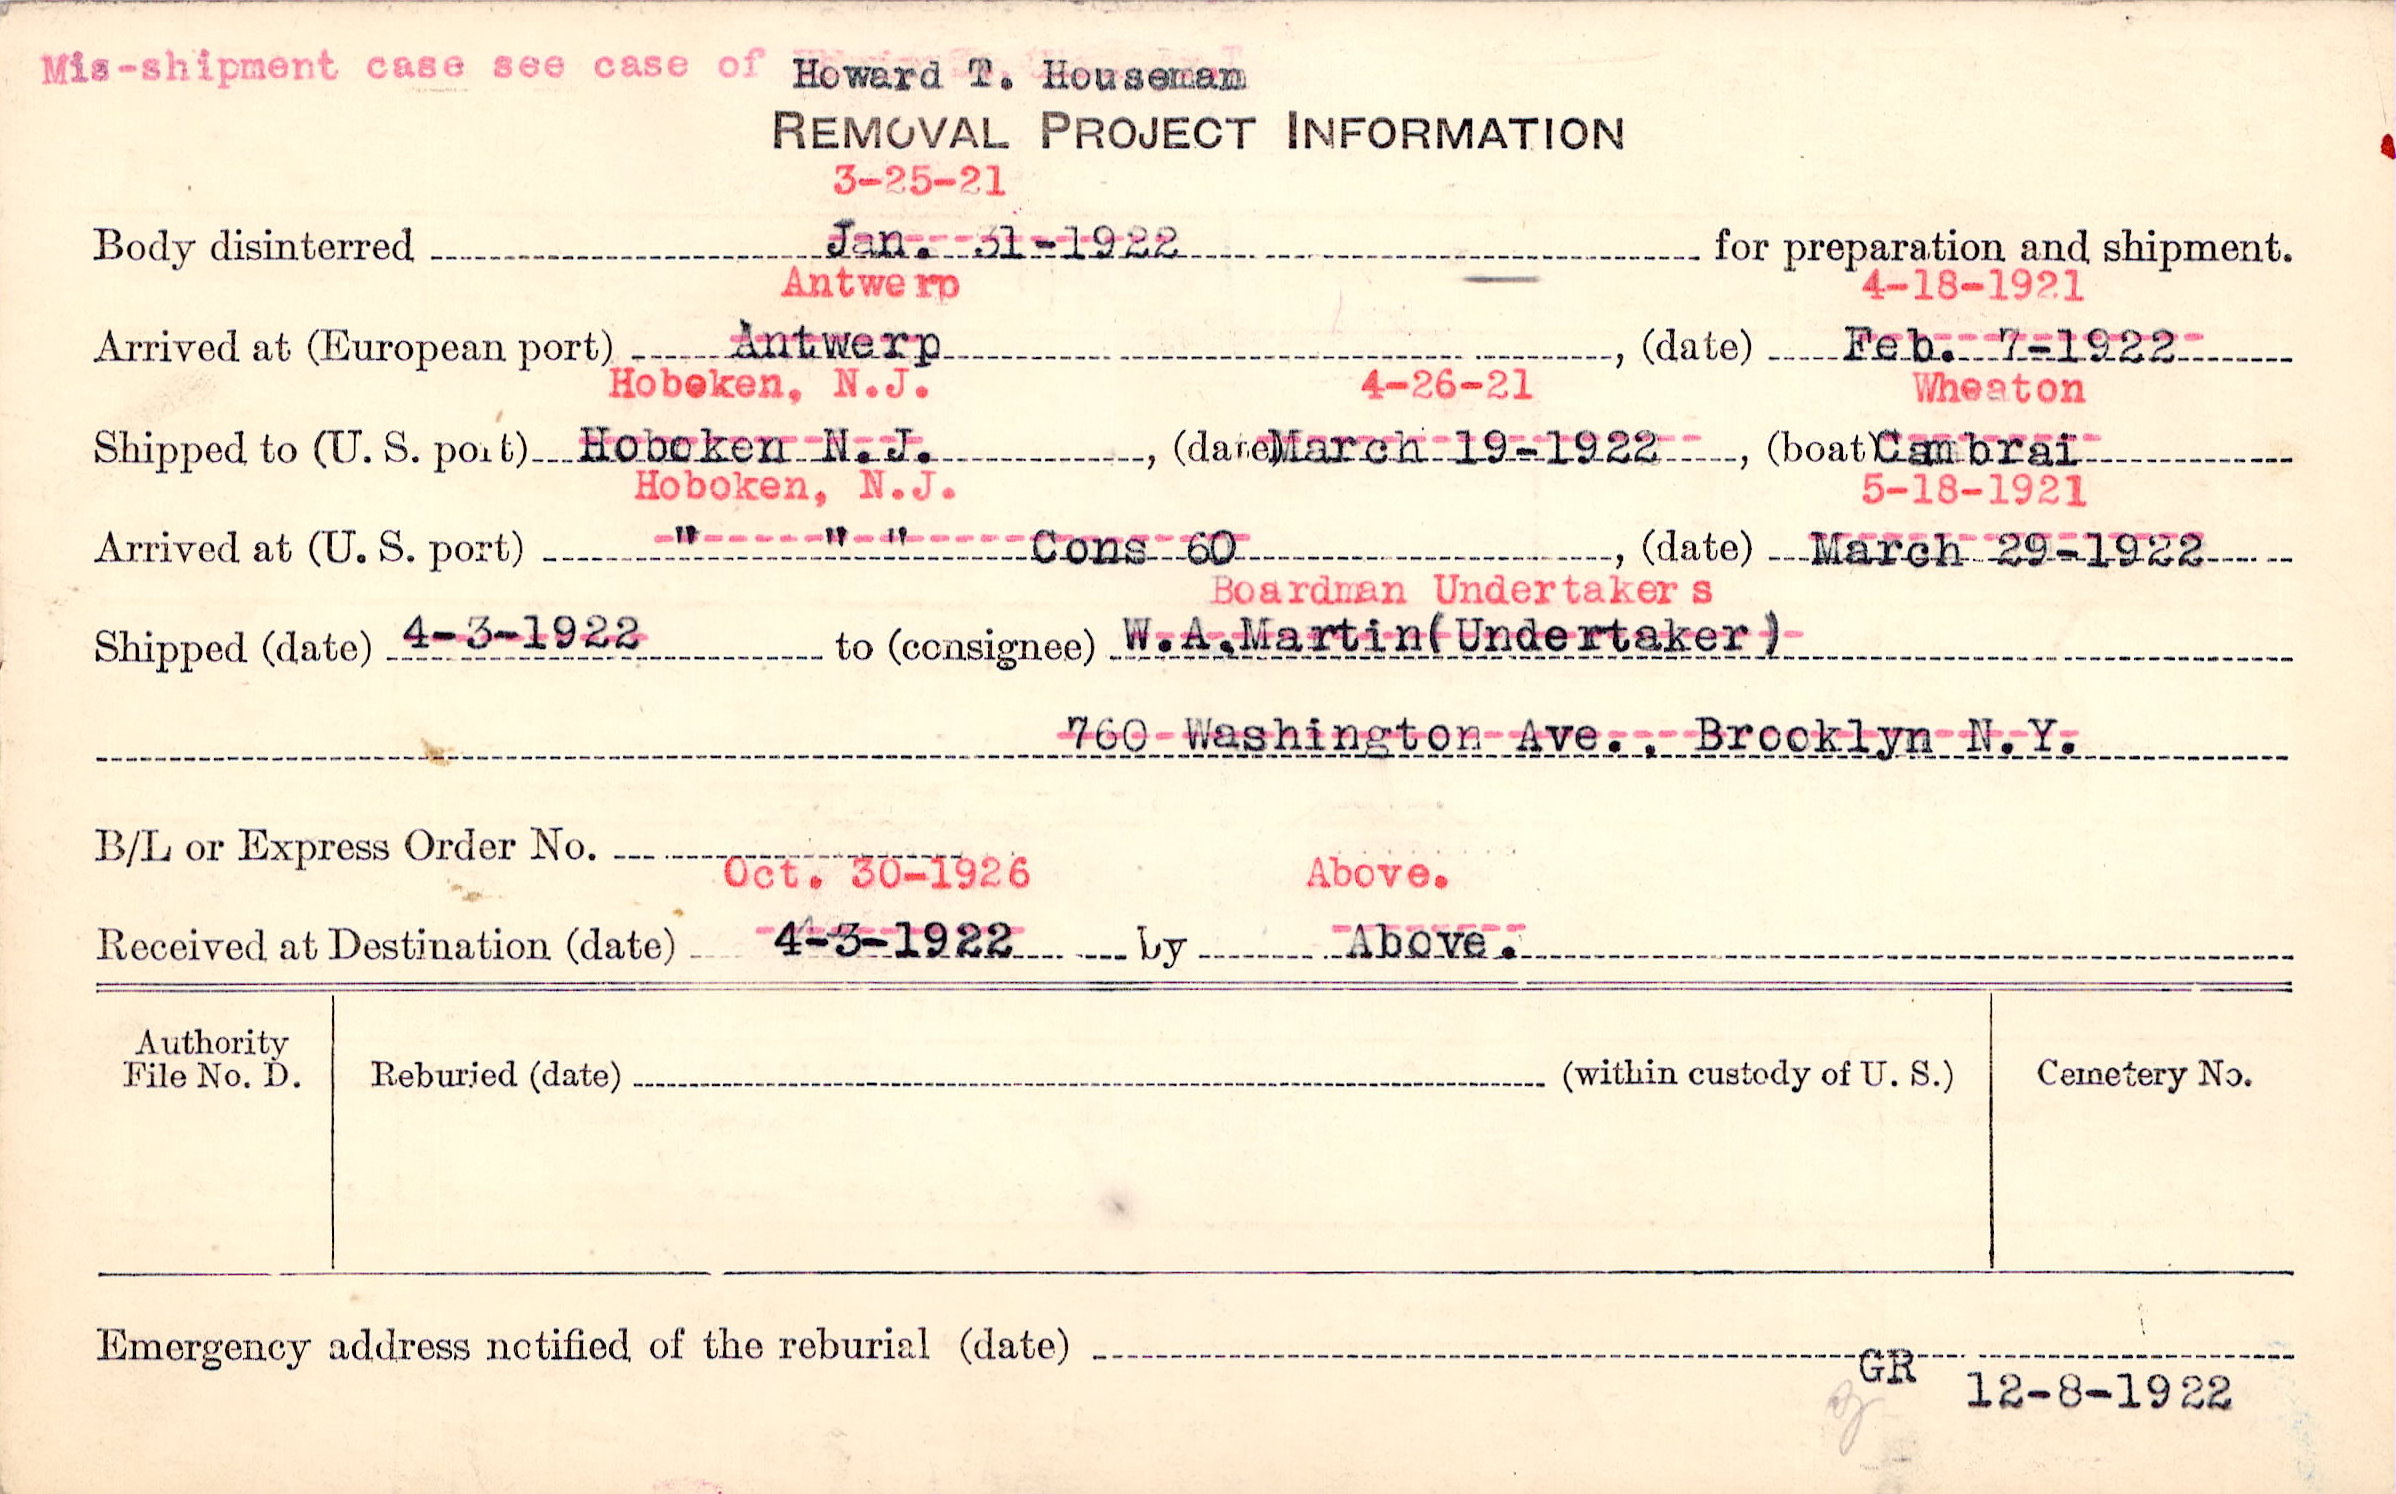 Mis-shipment case see case of Howard T. Houseman
REMOVAL PROJECT INFORMATION
3-25-21
Body disinterred Jan. 31-1922 for preparation and shipment.
Antwerp 4-18-1921
Arrived at (European port) Antwerp, (date) Feb. 7-1922
Hoboken, N.J. 4-26-21 Wheaton
Shipped to (U. S. port) Hoboken N.J., (date) March 19-1922, (boat) Cambrai
Hoboken, N.J. 5-18-1921
Arrived at (U. S. port) " " " Cons 60, (date) March 29-1922
Boardman Undertakers
Shipped (date) 4-3-1922 to (consignee) W.A.Martin(Undertaker)
760 Washington Ave., Brooklyn N.Y.
B/L or Express Order No.
Oct. 30-1926 Above.
Received at Destination (date) 4-3-1922 by Above.
Authority
File No. D.
Reburied (date) (within custody of U. S.)
Cemetery No.
Emergency address notified of the reburial (date)
GR 12-8-1922